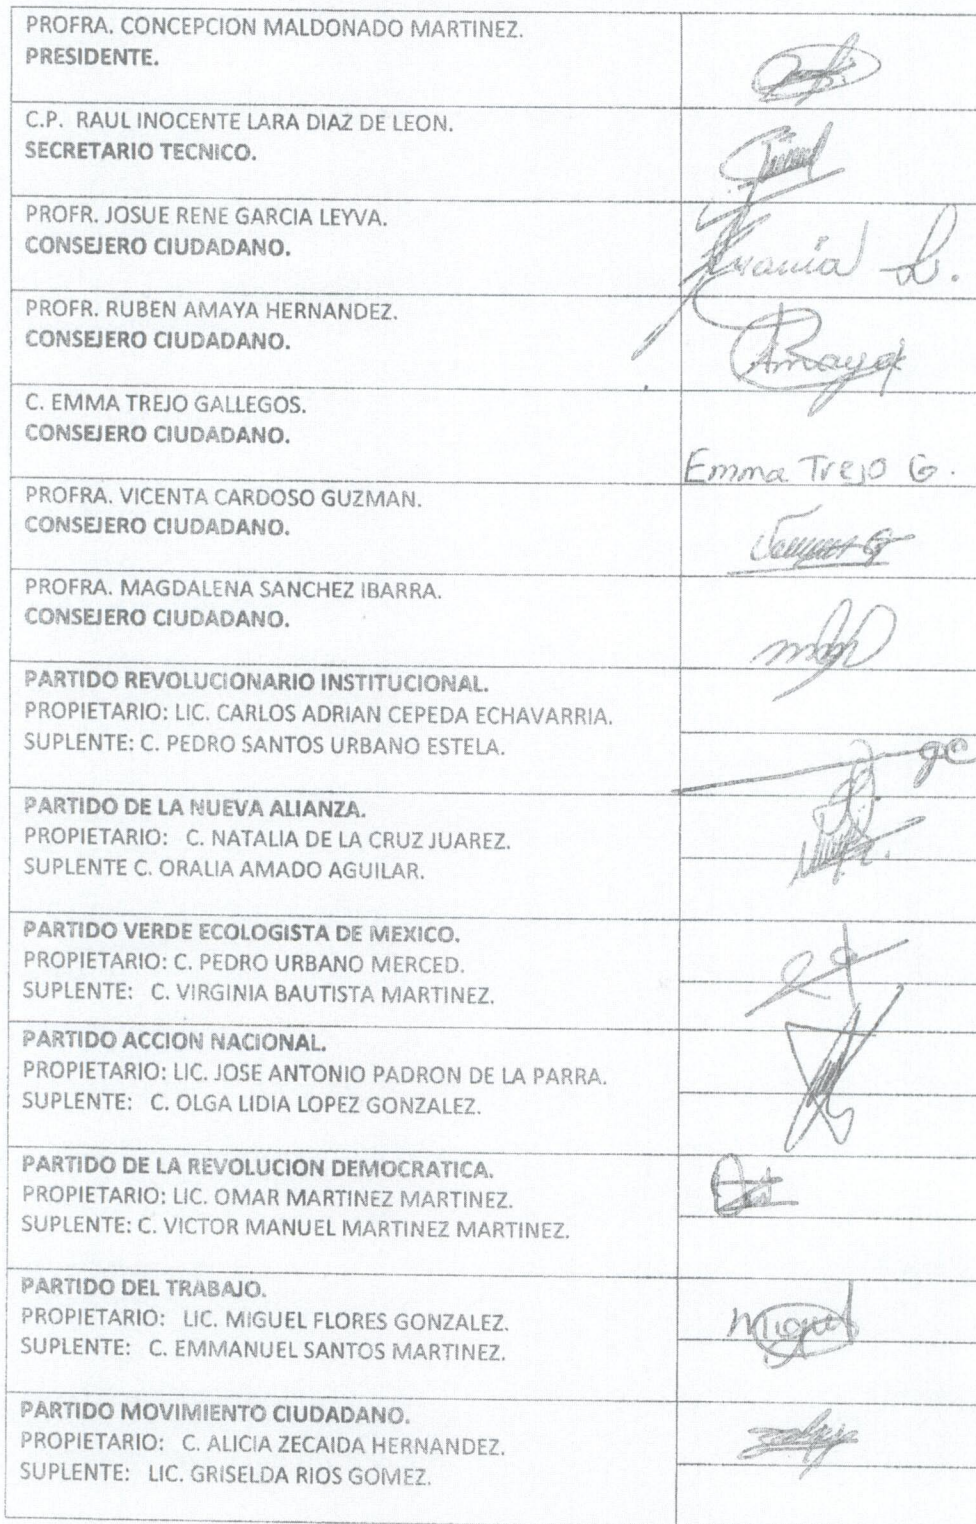 PROFRA. CONCEPCION MALDONADO MARTINEZ.
PRESIDENTE.
C.P. RAUL INOCENTE LARA DIAZ DE LEON.
SECRETARIO TECNICO.
PROFR. JOSUE RENE GARCIA LEYVA.
CONSEJERO CIUDADANO.
PROFR. RUBEN AMAYA HERNANDEZ.
CONSEJERO CIUDADANO.
Amaya
C. EMMA TREJO GALLEGOS.
CONSEJERO CIUDADANO.
Emma Trejo G.
PROFRA. VICENTA CARDOSO GUZMAN.
CONSEJERO CIUDADANO.
PROFRA. MAGDALENA SANCHEZ IBARRA.
CONSEJERO CIUDADANO.
PARTIDO REVOLUCIONARIO INSTITUCIONAL.
PROPIETARIO: LIC. CARLOS ADRIAN CEPEDA ECHAVARRIA.
SUPLENTE: C. PEDRO SANTOS URBANO ESTELA.
PARTIDO DE LA NUEVA ALIANZA.
PROPIETARIO: C. NATALIA DE LA CRUZ JUAREZ.
SUPLENTE C. ORALIA AMADO AGUILAR.
PARTIDO VERDE ECOLOGISTA DE MEXICO.
PROPIETARIO: C. PEDRO URBANO MERCED.
SUPLENTE: C. VIRGINIA BAUTISTA MARTINEZ.
PARTIDO ACCION NACIONAL.
PROPIETARIO: LIC. JOSE ANTONIO PADRON DE LA PARRA.
SUPLENTE: C. OLGA LIDIA LOPEZ GONZALEZ.
PARTIDO DE LA REVOLUCION DEMOCRATICA.
PROPIETARIO: LIC. OMAR MARTINEZ MARTINEZ.
SUPLENTE: C. VICTOR MANUEL MARTINEZ MARTINEZ.
PARTIDO DEL TRABAJO.
PROPIETARIO: LIC. MIGUEL FLORES GONZALEZ.
Miguel
SUPLENTE: C. EMMANUEL SANTOS MARTINEZ.
PARTIDO MOVIMIENTO CIUDADANO.
PROPIETARIO: C. ALICIA ZECAIDA HERNANDEZ.
SUPLENTE: LIC. GRISELDA RIOS GOMEZ.